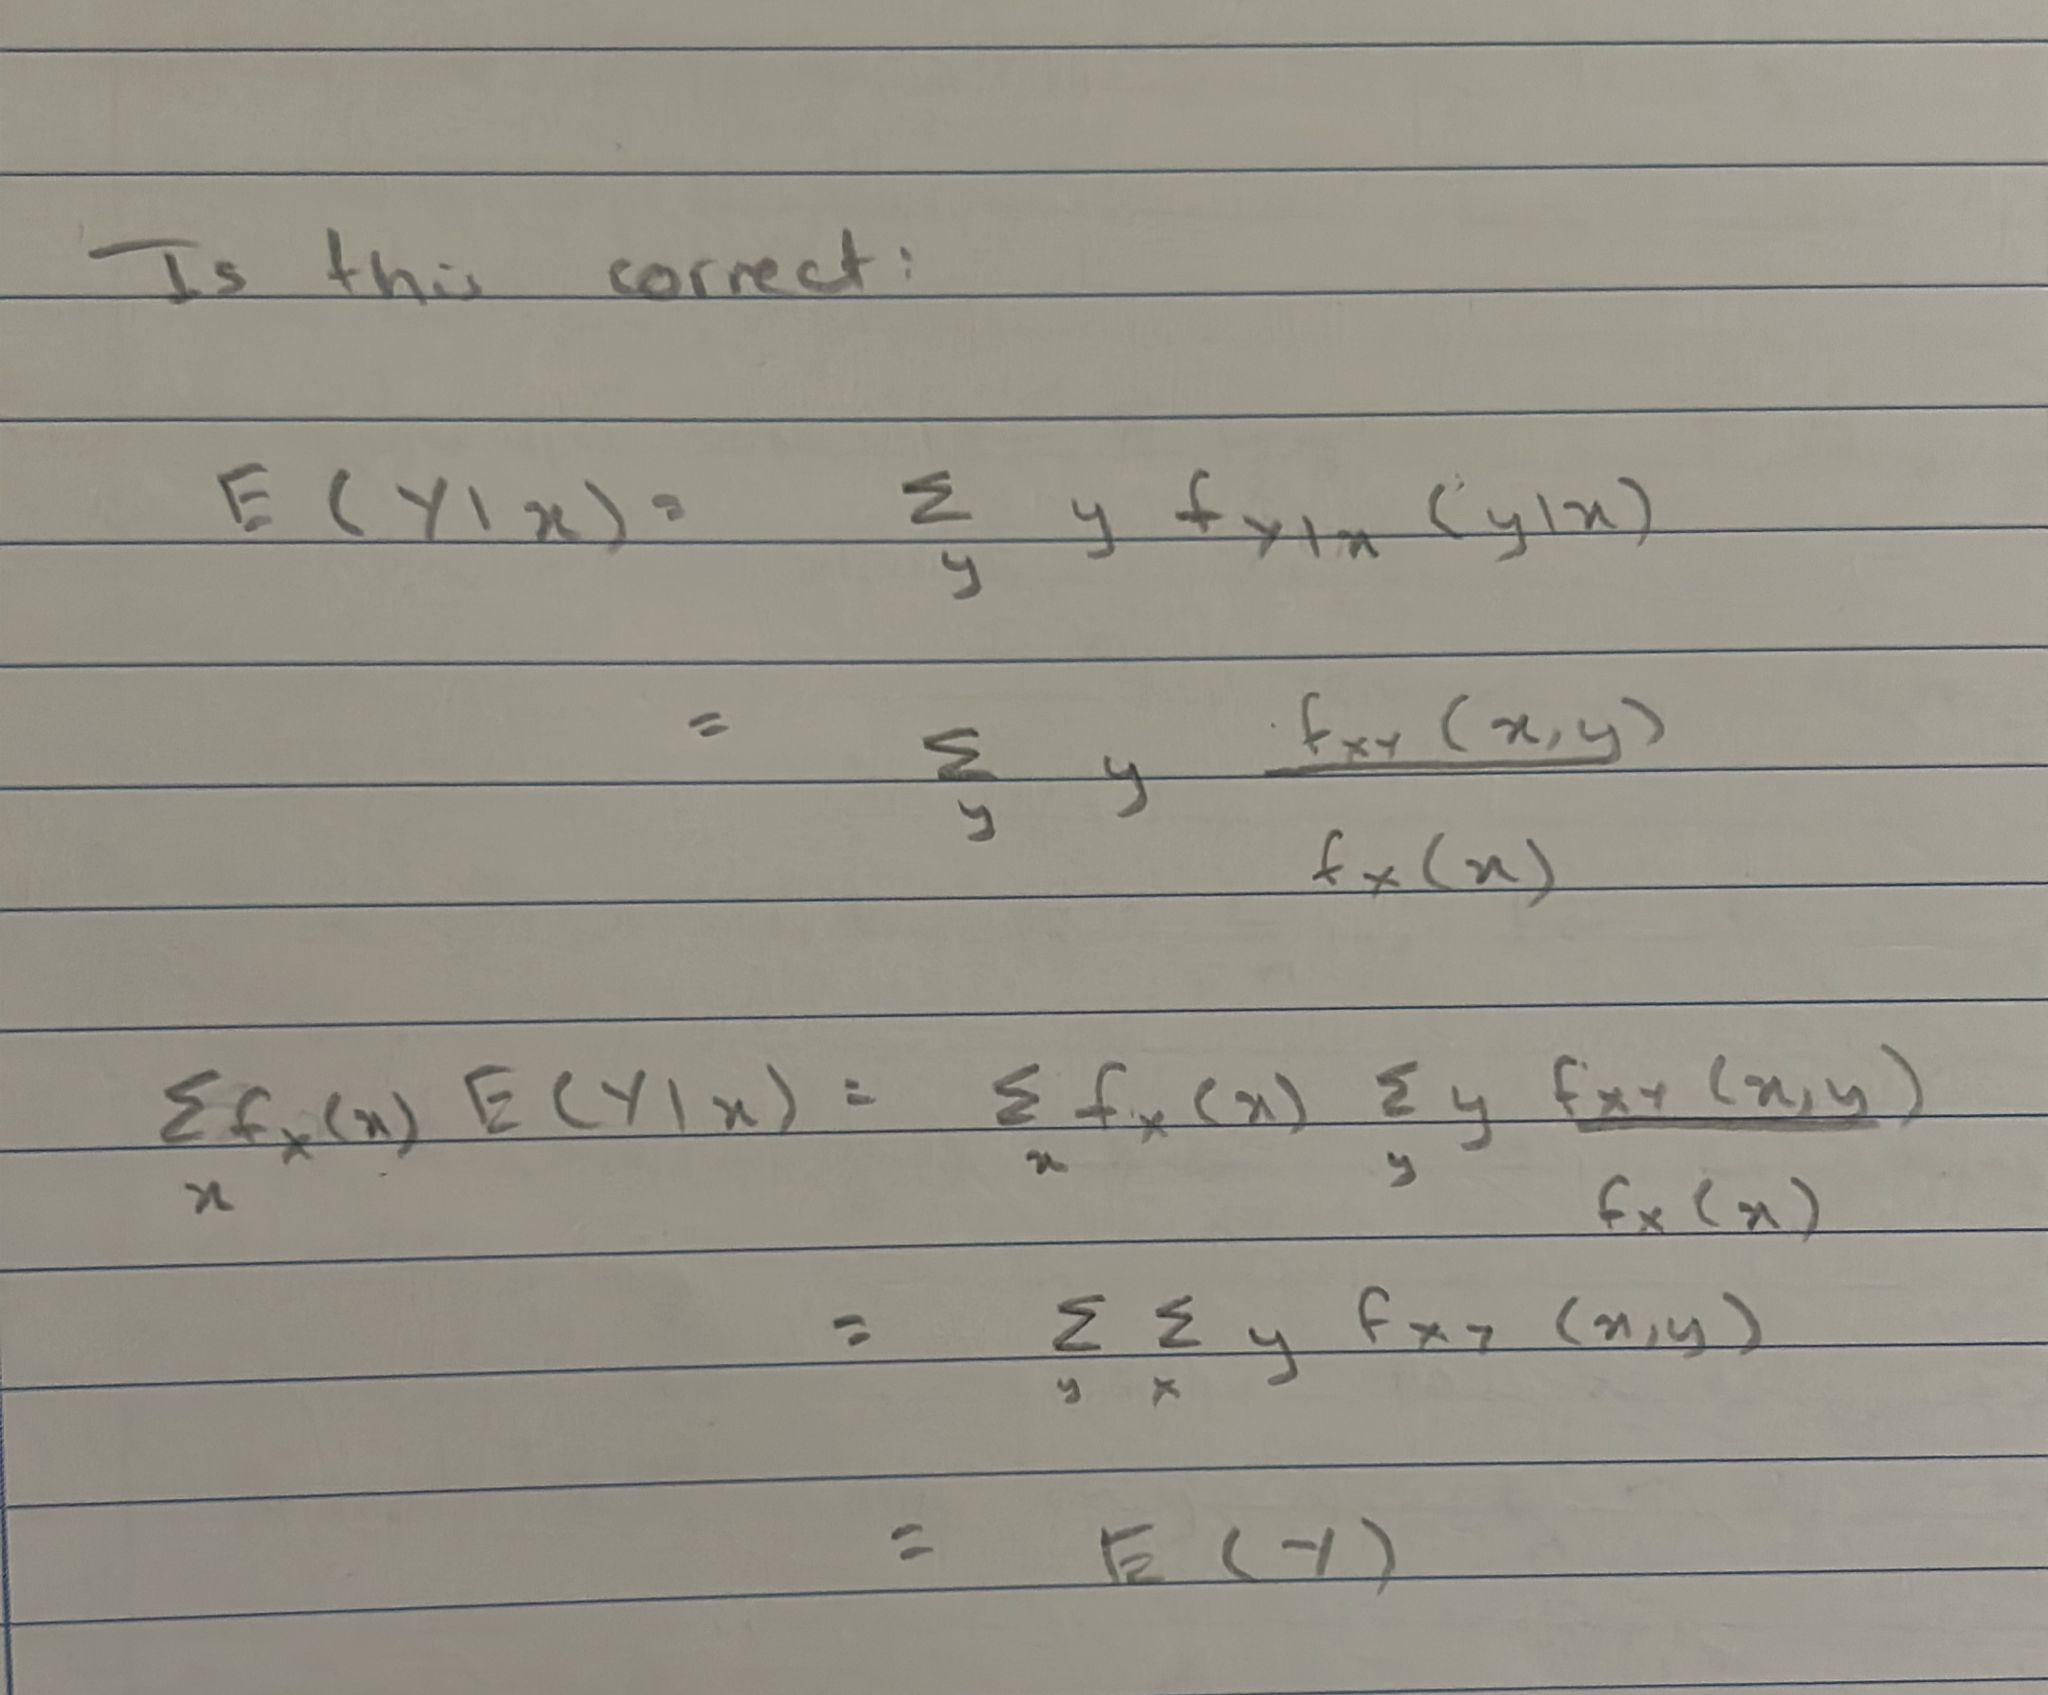 Is this correct:
E(Y|x) = Σ_y y f_{Y|x}(y|x)
= Σ_y y f_{XY}(x,y) / f_X(x)
Σ_x f_X(x) E(Y|x) = Σ_x f_X(x) Σ_y y f_{XY}(x,y) / f_X(x)
= Σ_y Σ_x y f_{XY}(x,y)
= E(Y)